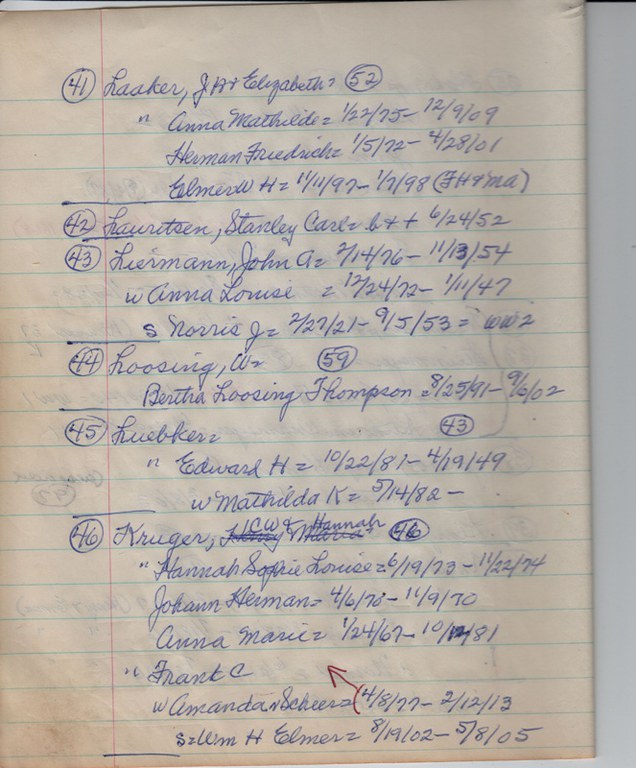 (41) Laaker, J H + Elizabeth = (52)
" Anna Mathilde = 1/22/75 - 12/9/09
Herman Friedrich = 1/5/72 - 4/28/01
Elmer W H = 11/11/97 - 1/7/98 (JH + ma)
(42) Lauritsen, Stanley Carl = b + + 6/24/52
(43) Liermann, John A = 2/14/76 - 11/13/54
w Anna Louise = 12/24/72 - 1/11/47
s Norris J = 2/27/21 - 9/5/53 = WW2
(44) Loosing, Wm (59)
Bertha Loosing Thompson = 8/25/91 - 9/6/02
(45) Luebker = (43)
" Edward H = 10/22/81 - 4/19/49
w Mathilda K = 5/14/82 -
(46) Kruger, CW + Hannah (46)
" Hannah Sophie Louise = 6/19/73 - 11/22/74
Johann Herman = 4/6/70 - 11/9/70
Anna Marie = 1/24/67 - 10/12/81
" Frank C
w Amanda Scheer = (4/8/77 - 2/12/13
s = Wm H Elmer = 8/19/02 - 5/8/05